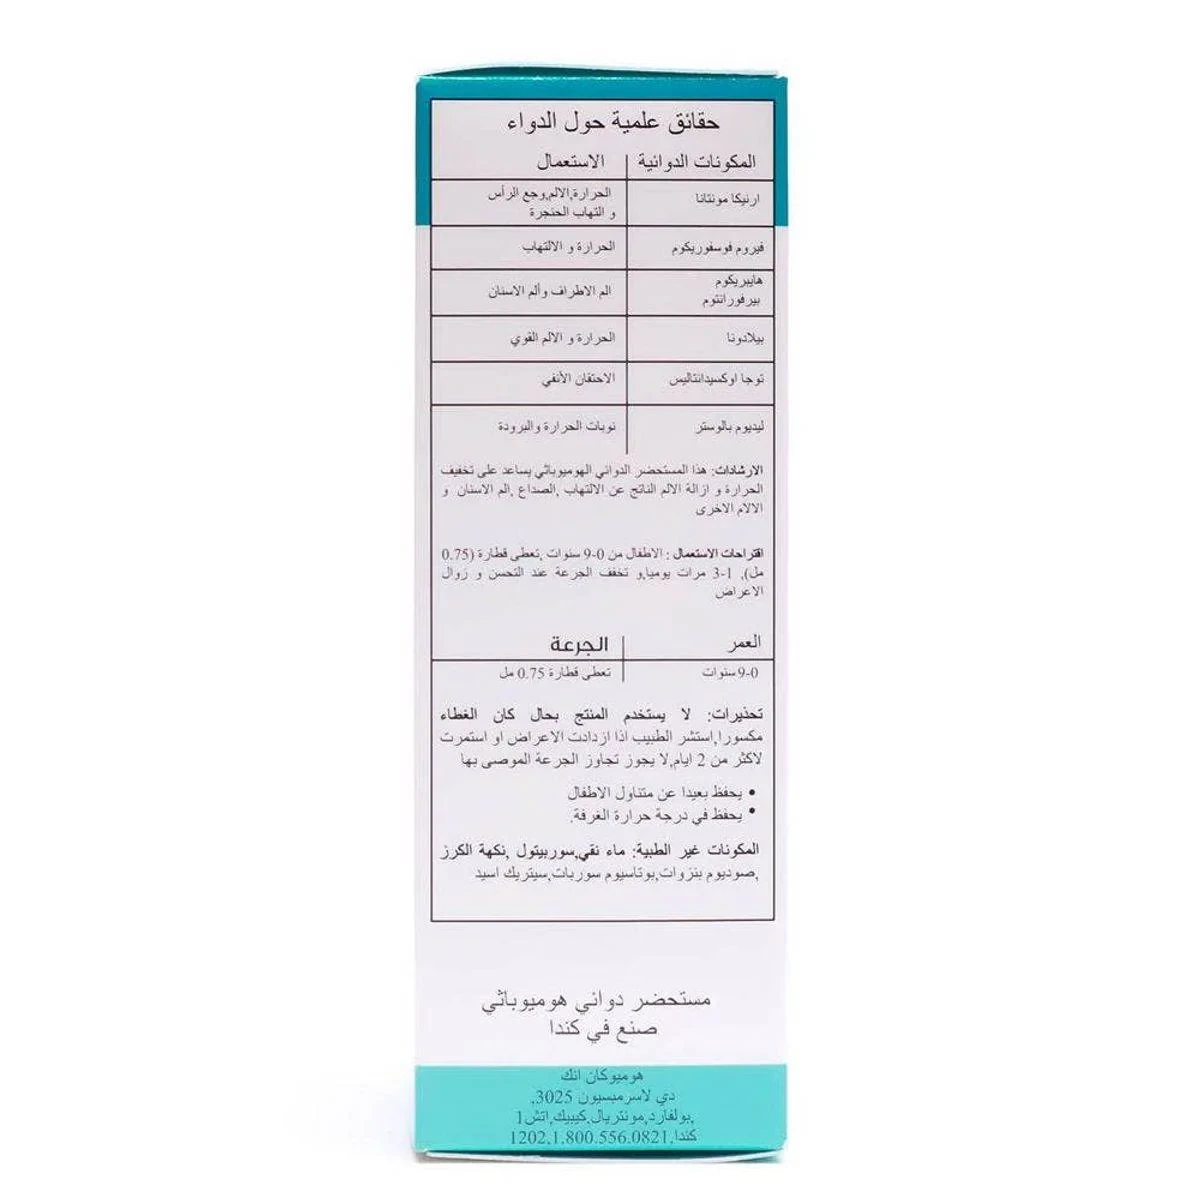 حقائق علمية حول الدواء
المكونات الدوائية | الاستعمال
ارنيكا مونتانا
الحرارة,الالم,وجع الرأس
و التهاب الحنجرة
فيروم فوسفوريكوم
الحرارة و الالتهاب
هايبريكوم
بيرفورانتوم
الم الاطراف وألم الاسنان
بيلادونا
الحرارة و الالم القوي
توجا اوكسيدانتاليس
الاحتقان الأنفي
ليديوم بالوستر
نوبات الحرارة والبرودة
الارشادات: هذا المستحضر الدوائي الهوميوباثي يساعد على تخفيف
الحرارة و ازالة الالم الناتج عن الالتهاب ,الصداع ,الم الاسنان و
الالام الاخرى
اقتراحات الاستعمال : الاطفال من 0-9 سنوات ,تعطى قطارة (0.75
مل), 1-3 مرات يوميا,و تخفف الجرعة عند التحسن و زوال
الاعراض
العمر | الجرعة
0-9 سنوات
تعطى قطارة 0.75 مل
تحذيرات: لا يستخدم المنتج بحال كان الغطاء
مكسورا,استشر الطبيب اذا ازدادت الاعراض او استمرت
لاكثر من 2 ايام,لا يجوز تجاوز الجرعة الموصى بها
• يحفظ بعيدا عن متناول الاطفال
• يحفظ في درجة حرارة الغرفة.
المكونات غير الطبية: ماء نقي,سوربيتول ,نكهة الكرز
,صوديوم بنزوات,بوتاسيوم سوربات,سيتريك اسيد
مستحضر دوائي هوميوباثي
صنع في كندا
هوميوكان انك
دي لاسرمبسيون 3025,
,بولفارد,مونتريال,كيبيك,اتش1
كندا,1202,1.800.556.0821